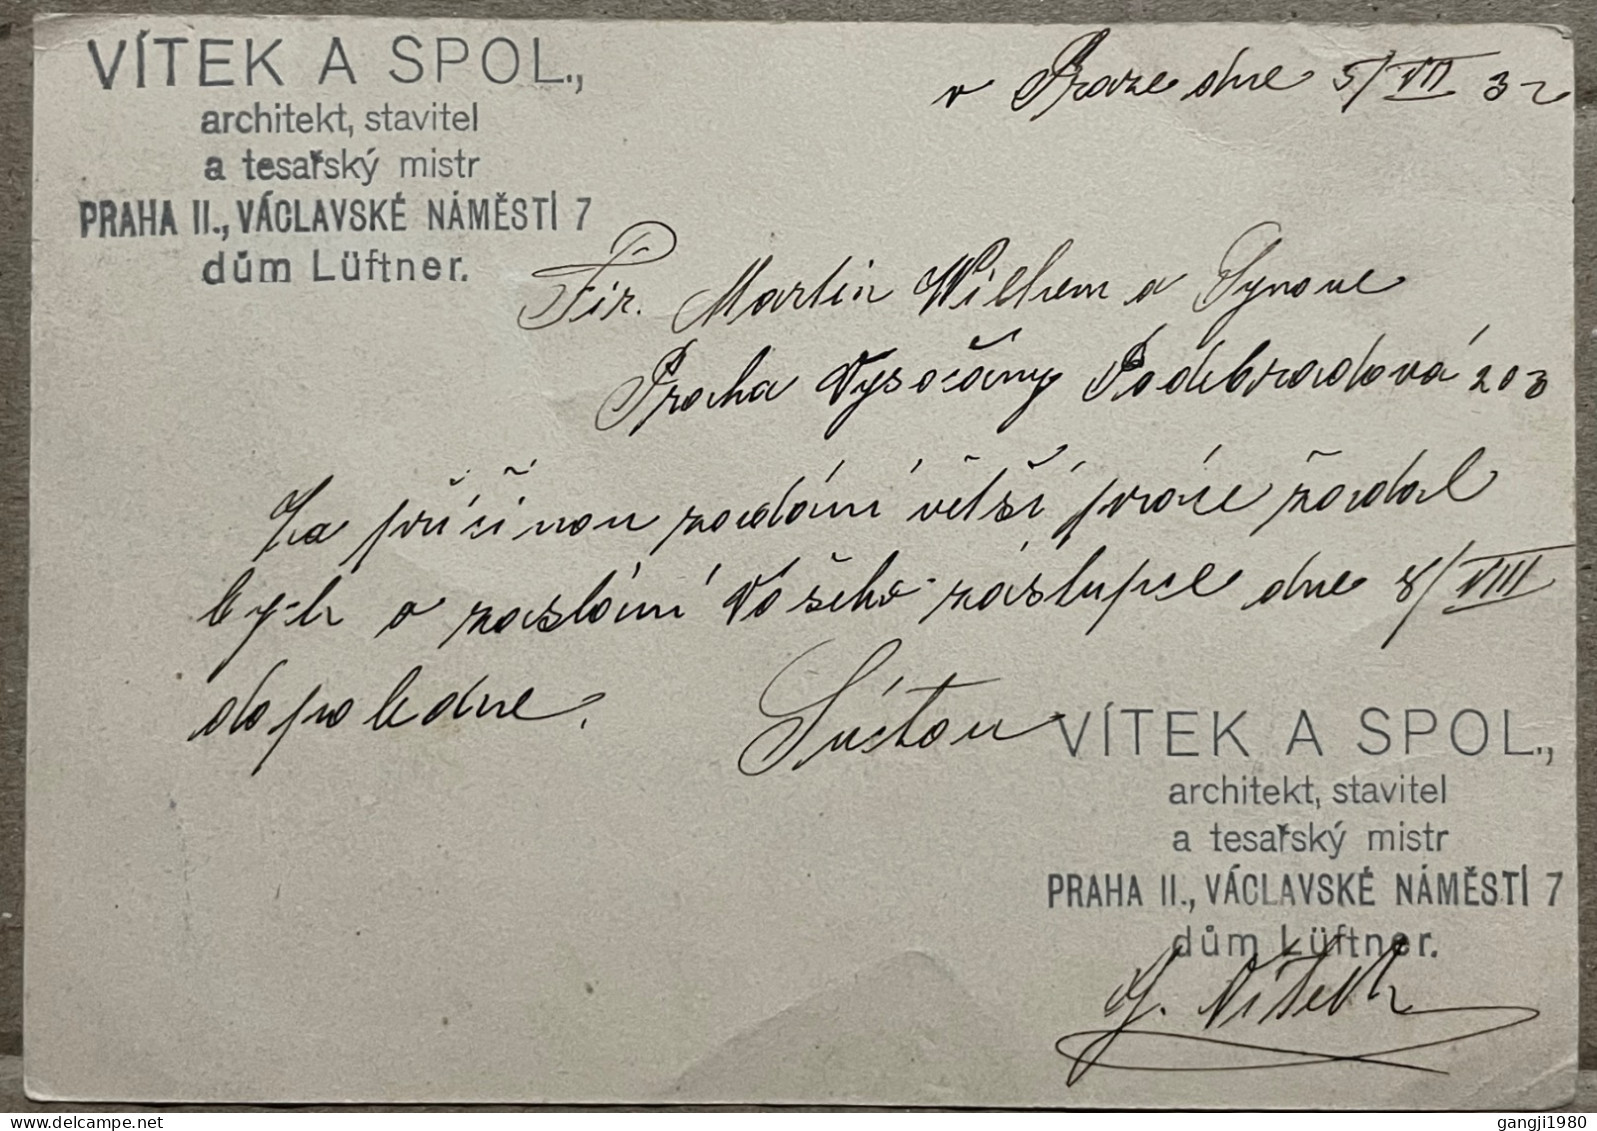 VÍTEK A SPOL.,
architekt, stavitel
a tesařský mistr
PRAHA II., VÁCLAVSKÉ NÁMĚSTÍ 7
dům Lüftner.
v Praze dne 5/VII 32
Fir. Martin Wilhem a Synove
Praha Vysočany Poděbradová 203
Za příčinou zadání větší práce žádal
bych o zaslání Vašeho zástupce dne 8/VIII
dopoledne.
S úctou
VÍTEK A SPOL.,
architekt, stavitel
a tesařský mistr
PRAHA II., VÁCLAVSKÉ NÁMĚSTÍ 7
dům Lüftner.
J. Vítek
gangji1980